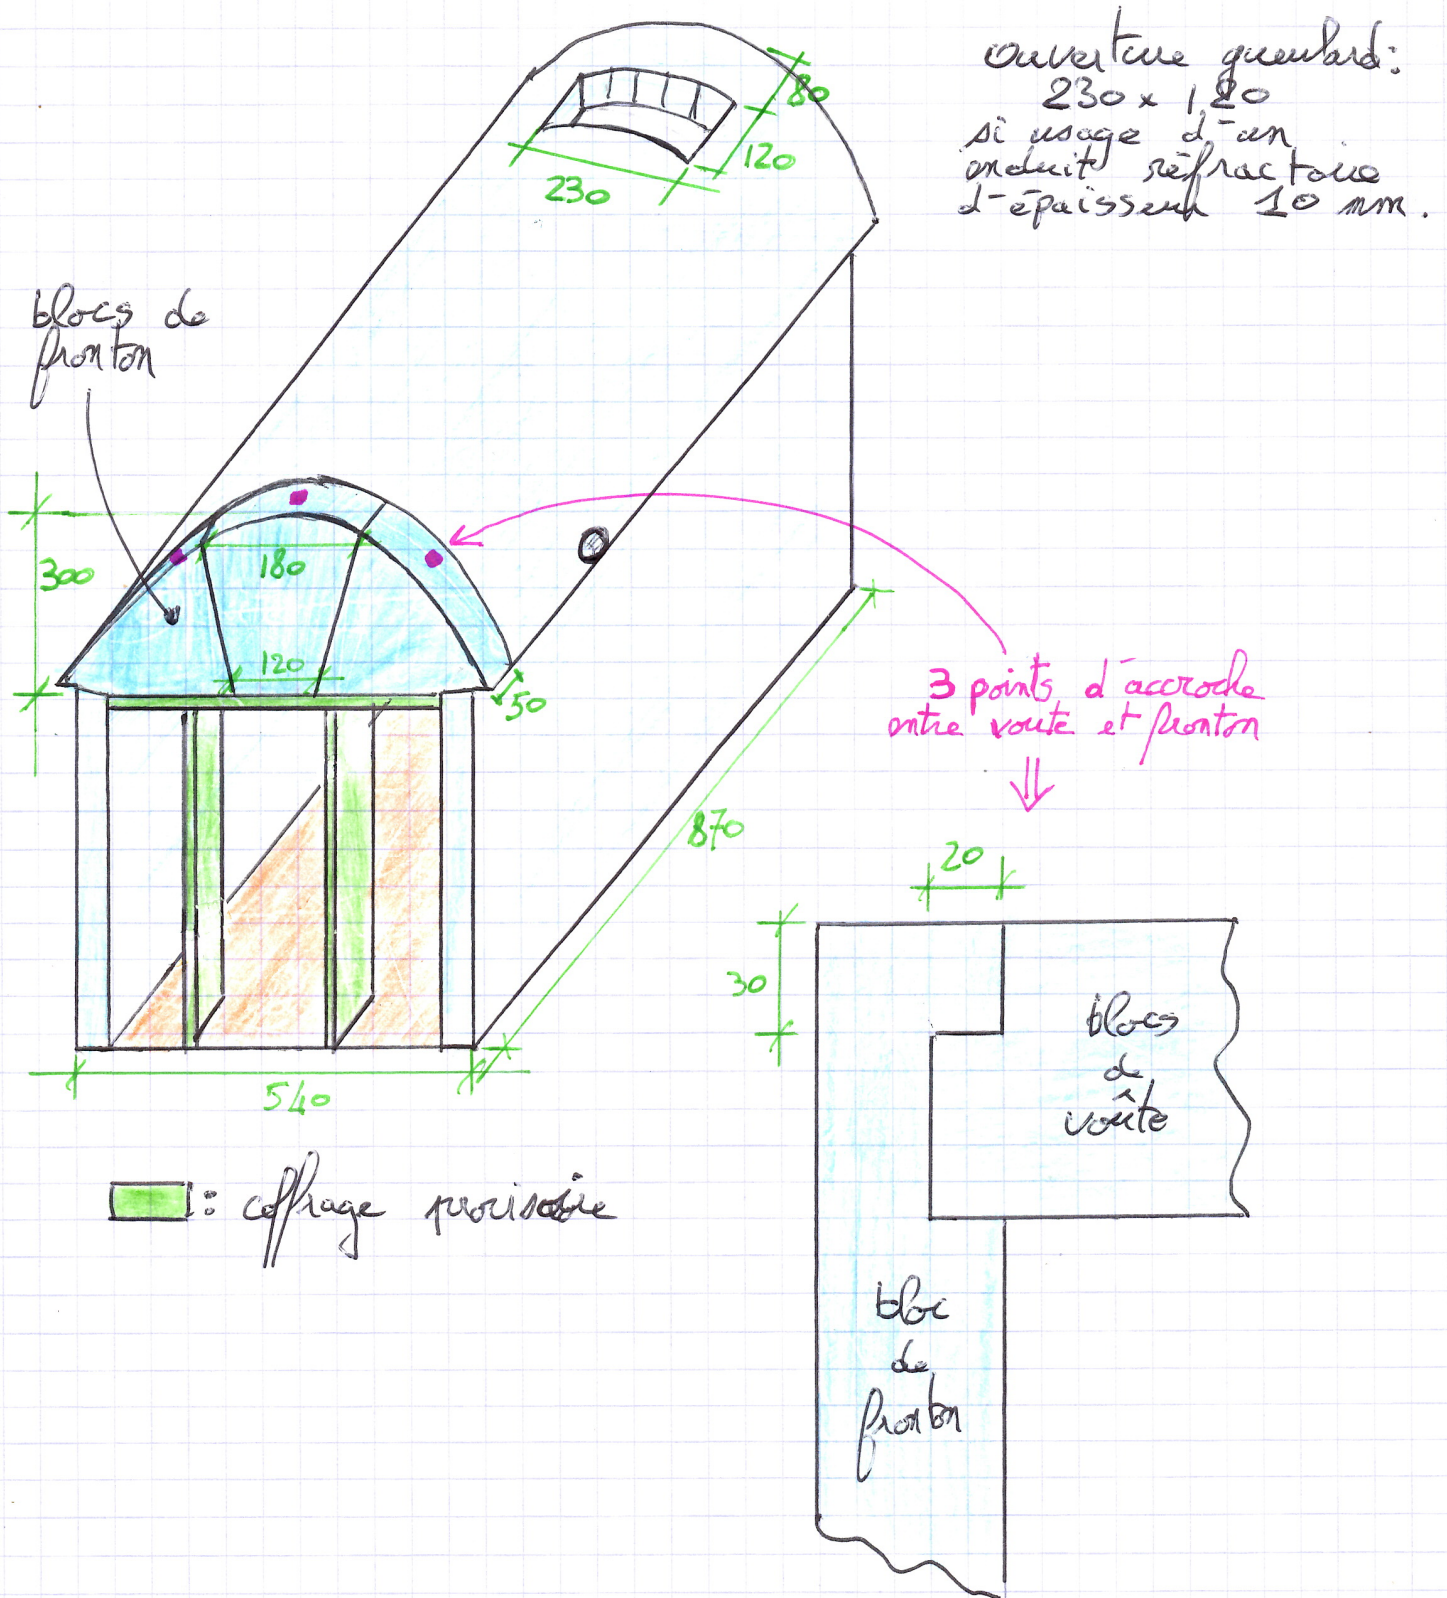 ouverture gueulard:
230 x 120
si usage d'un
enduit réfractaire
d'épaisseur 10 mm.
80
120
230
blocs de
fronton
300
180
120
50
3 points d'accroche
entre voute et fronton
870
20
30
blocs
de
voûte
540
: coffrage provisoire
bloc
de
fronton